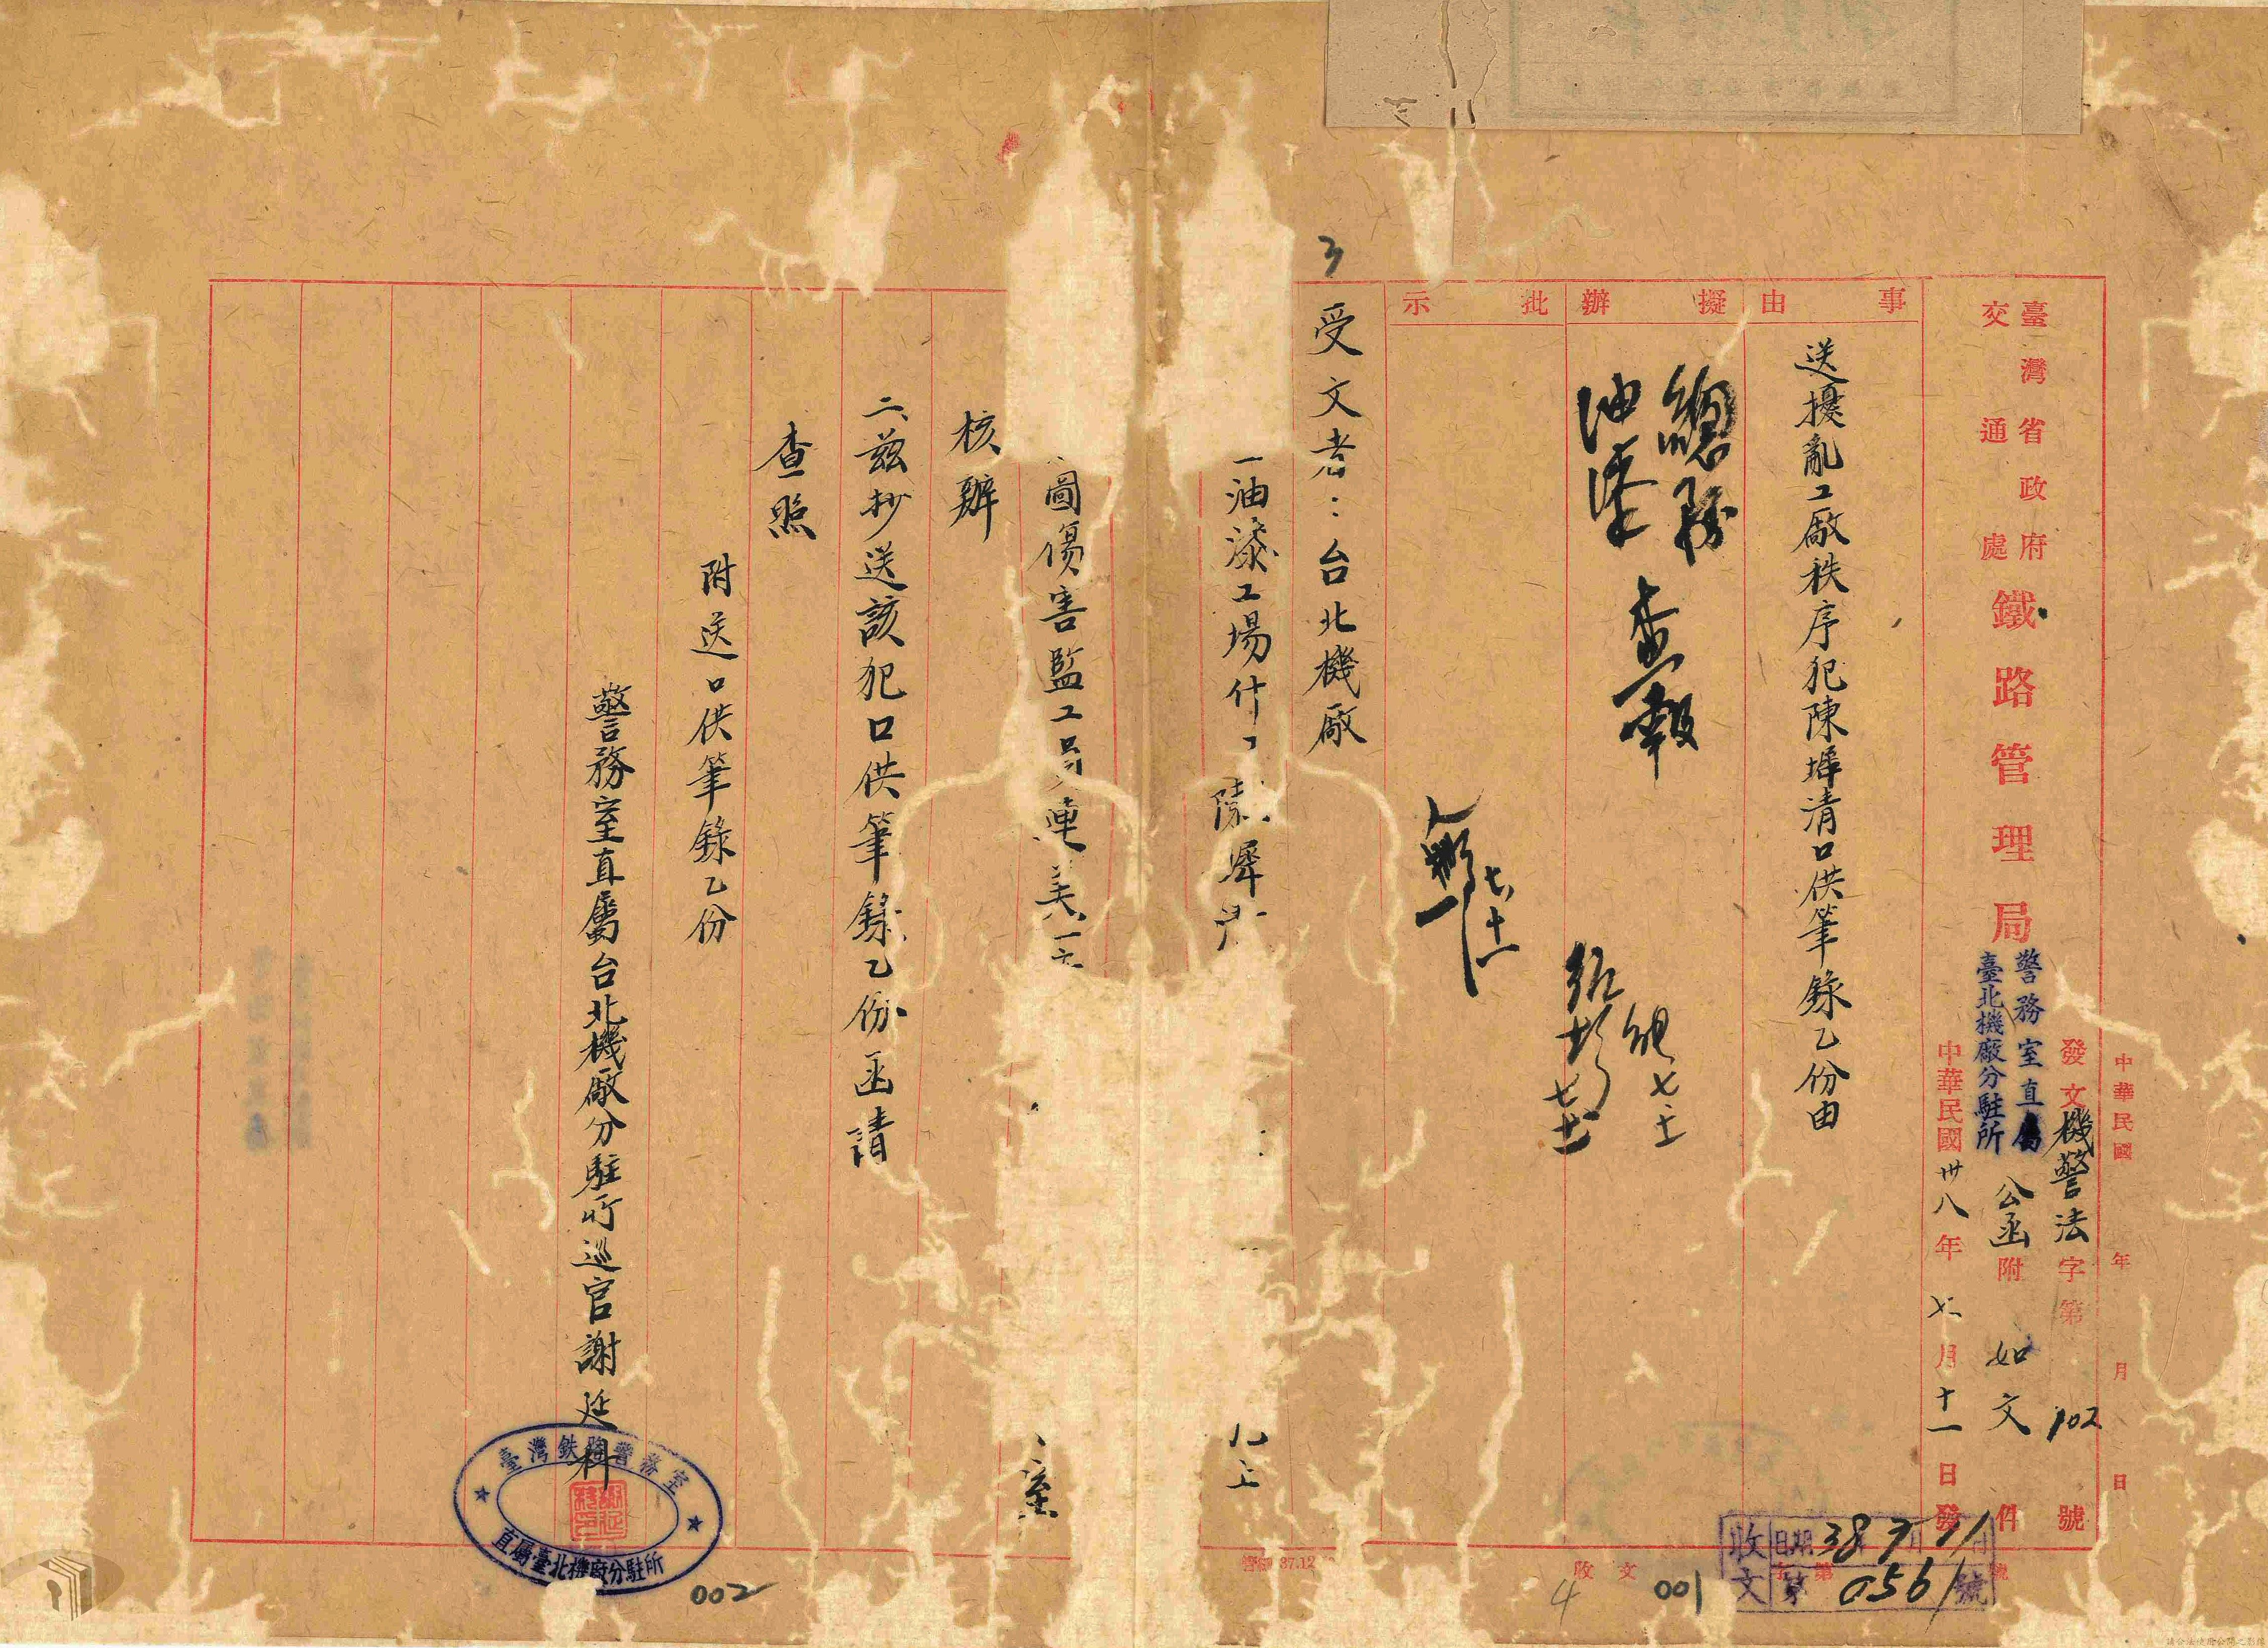 中華民國 年 月 日
發文機警法字第102號
臺灣省政府
交通處
鐵路管理局
警務室直屬
臺北機廠分駐所
公函
附如文件
中華民國卅八年七月十一日發
事由
送擾亂工廠秩序犯陳墀清口供筆錄乙份由
擬辦
總務
油漆
查報
批示
七、十一
受文者：台北機廠
一油漆工場什工陳墀
圖傷害監工員連美
核辦
二、茲抄送該犯口供筆錄乙份函請
查照
附送口供筆錄乙份
警務室直屬台北機廠分駐所巡官謝廷科
臺灣鉄路警務室
直屬臺北機廠分駐所
收文 字第 號
收文
日期 38 7 11
第0561號
37.12
001
002
4
3